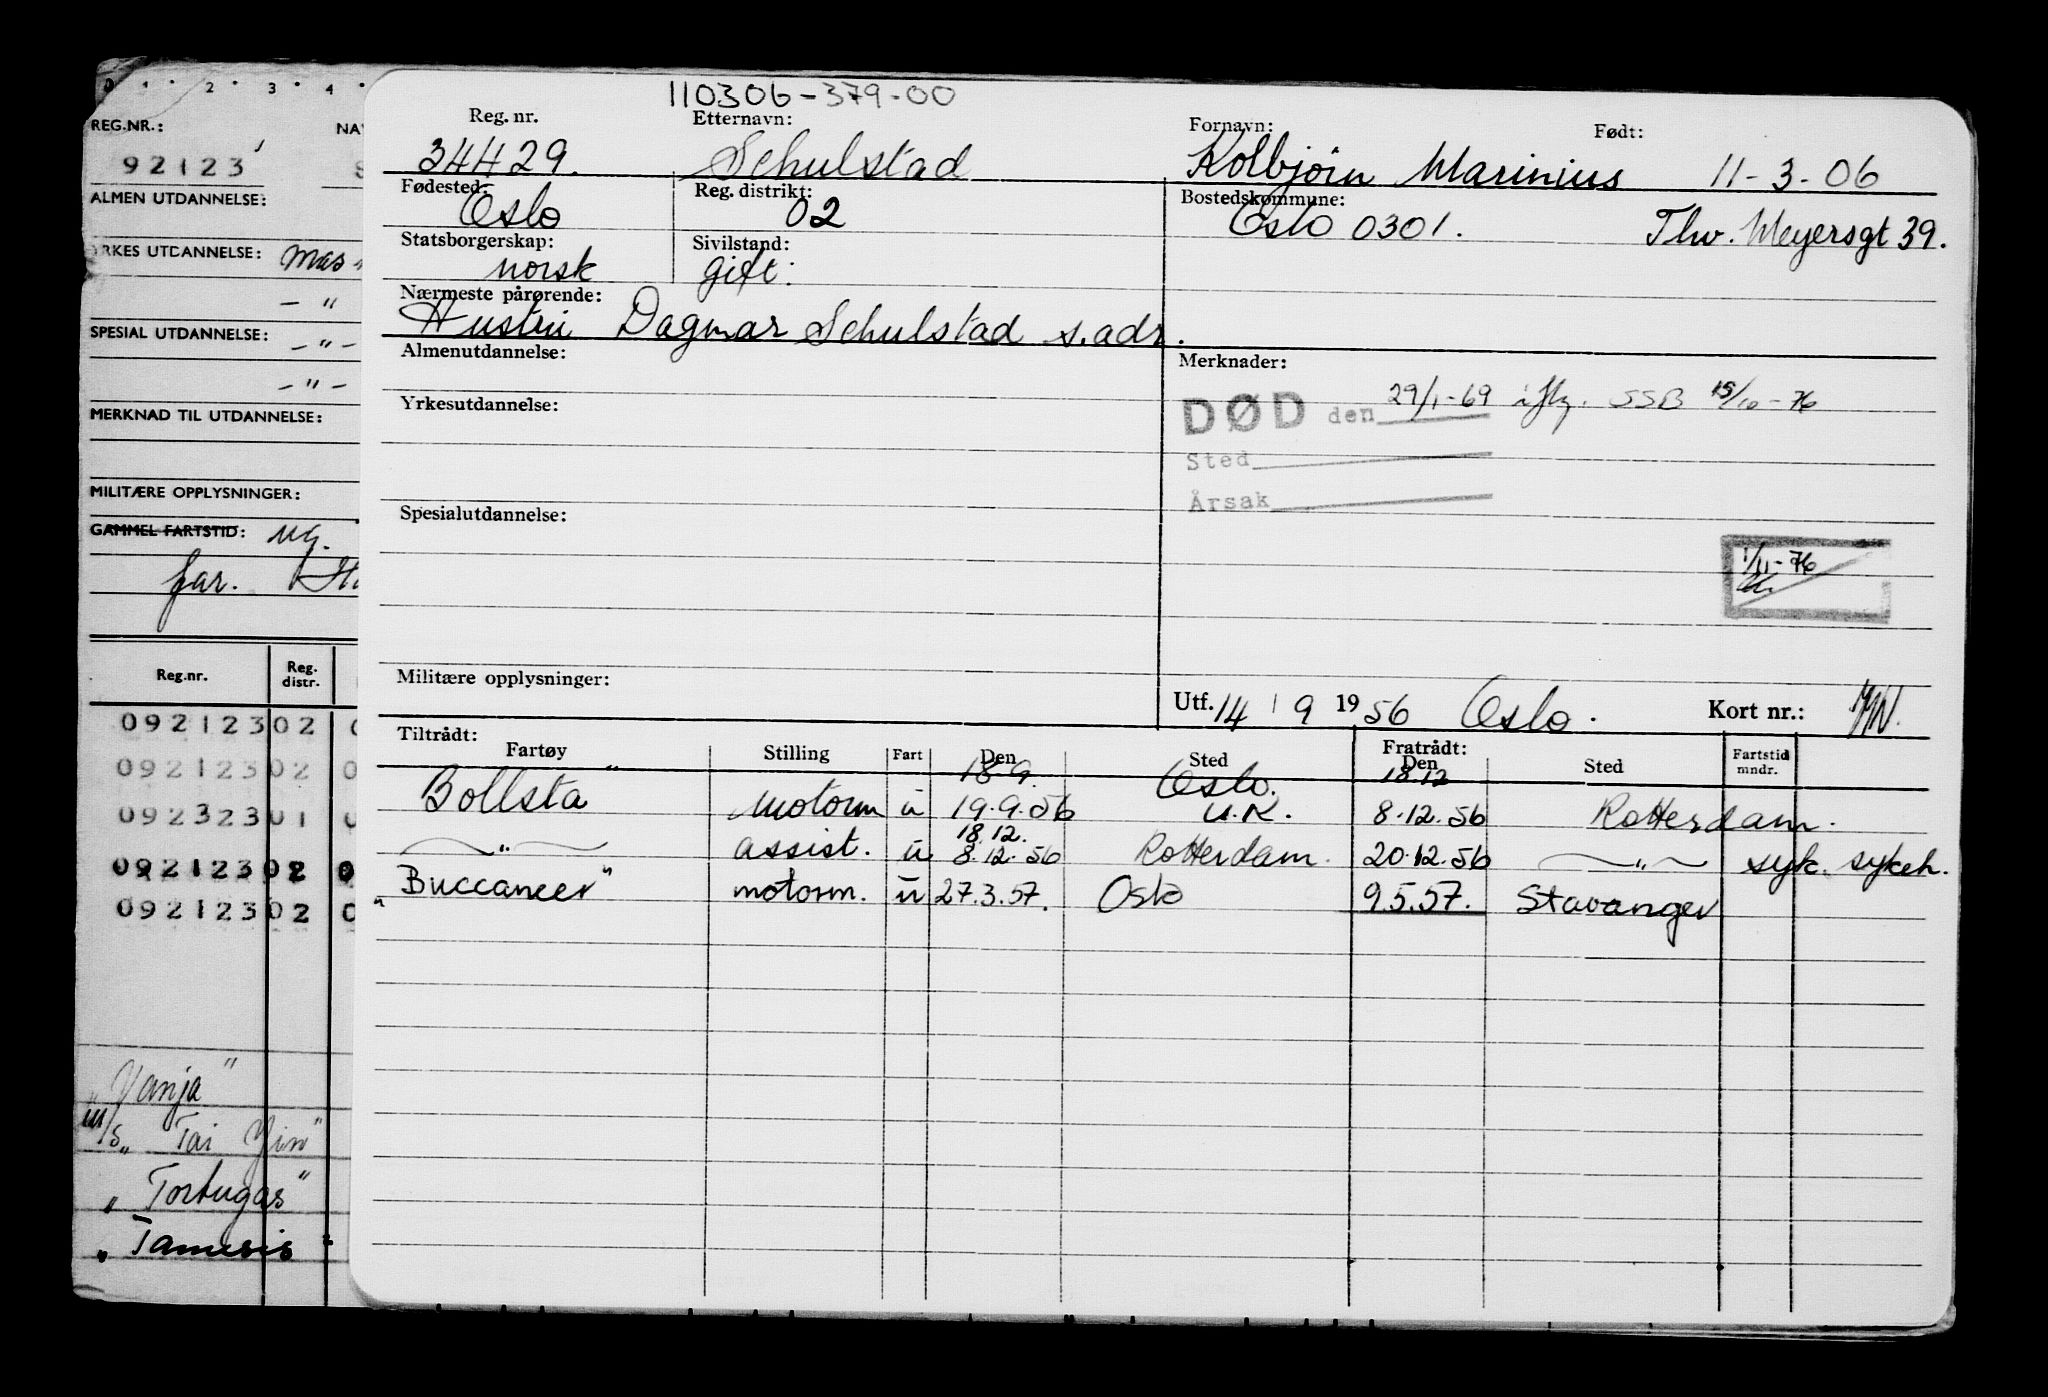 0 1 2 3 4
REG.NR.: NA
92123 S
ALMEN UTDANNELSE:
RKES UTDANNELSE: Mas
- " 
SPESIAL UTDANNELSE: - " -
- " -
MERKNAD TIL UTDANNELSE:
MILITÆRE OPPLYSNINGER:
GAMMEL FARTSTID: ug.
far.
Reg.nr. Reg. distr.
092123 02 0
092123 02 0
092323 01 0
092123 02 0
092123 02 0
"Vanja"
m/s "Tai Yin"
"Tortugas"
"Tamesis"
110306-379-00
Reg. nr. Etternavn: Fornavn: Født:
34429. Schulstad Kolbjörn Marinius 11-3-06
Fødested: Reg. distrikt: Bostedskommune:
Oslo 02 Oslo 0301. Thv. Meyersgt 39.
Statsborgerskap: Sivilstand:
norsk gift.
Nærmeste pårørende:
Hustru Dagmar Schulstad s.adr.
Almenutdannelse: Merknader:
Yrkesutdannelse: DØD den 29/1-69 iflg. SSB 15/10-76
Sted
Årsak
Spesialutdannelse:
1/11-76
Militære opplysninger: Utf. 14 / 9 1956 Oslo. Kort nr.:
Tiltrådt: Fratrådt:
Fartøy Stilling Fart Den Sted Den Sted Fartstid mndr.
18-9. Oslo. 18.12
Bollsta" motorm u 19.9.56 U.K. 8.12.56 Rotterdam.
18.12.
—"— assist. u 8.12.56 Rotterdam. 20.12.56 —"— syk. sykeh.
"Buccaneer" motorm. u 27.3.57. Oslo 9.5.57. Stavanger